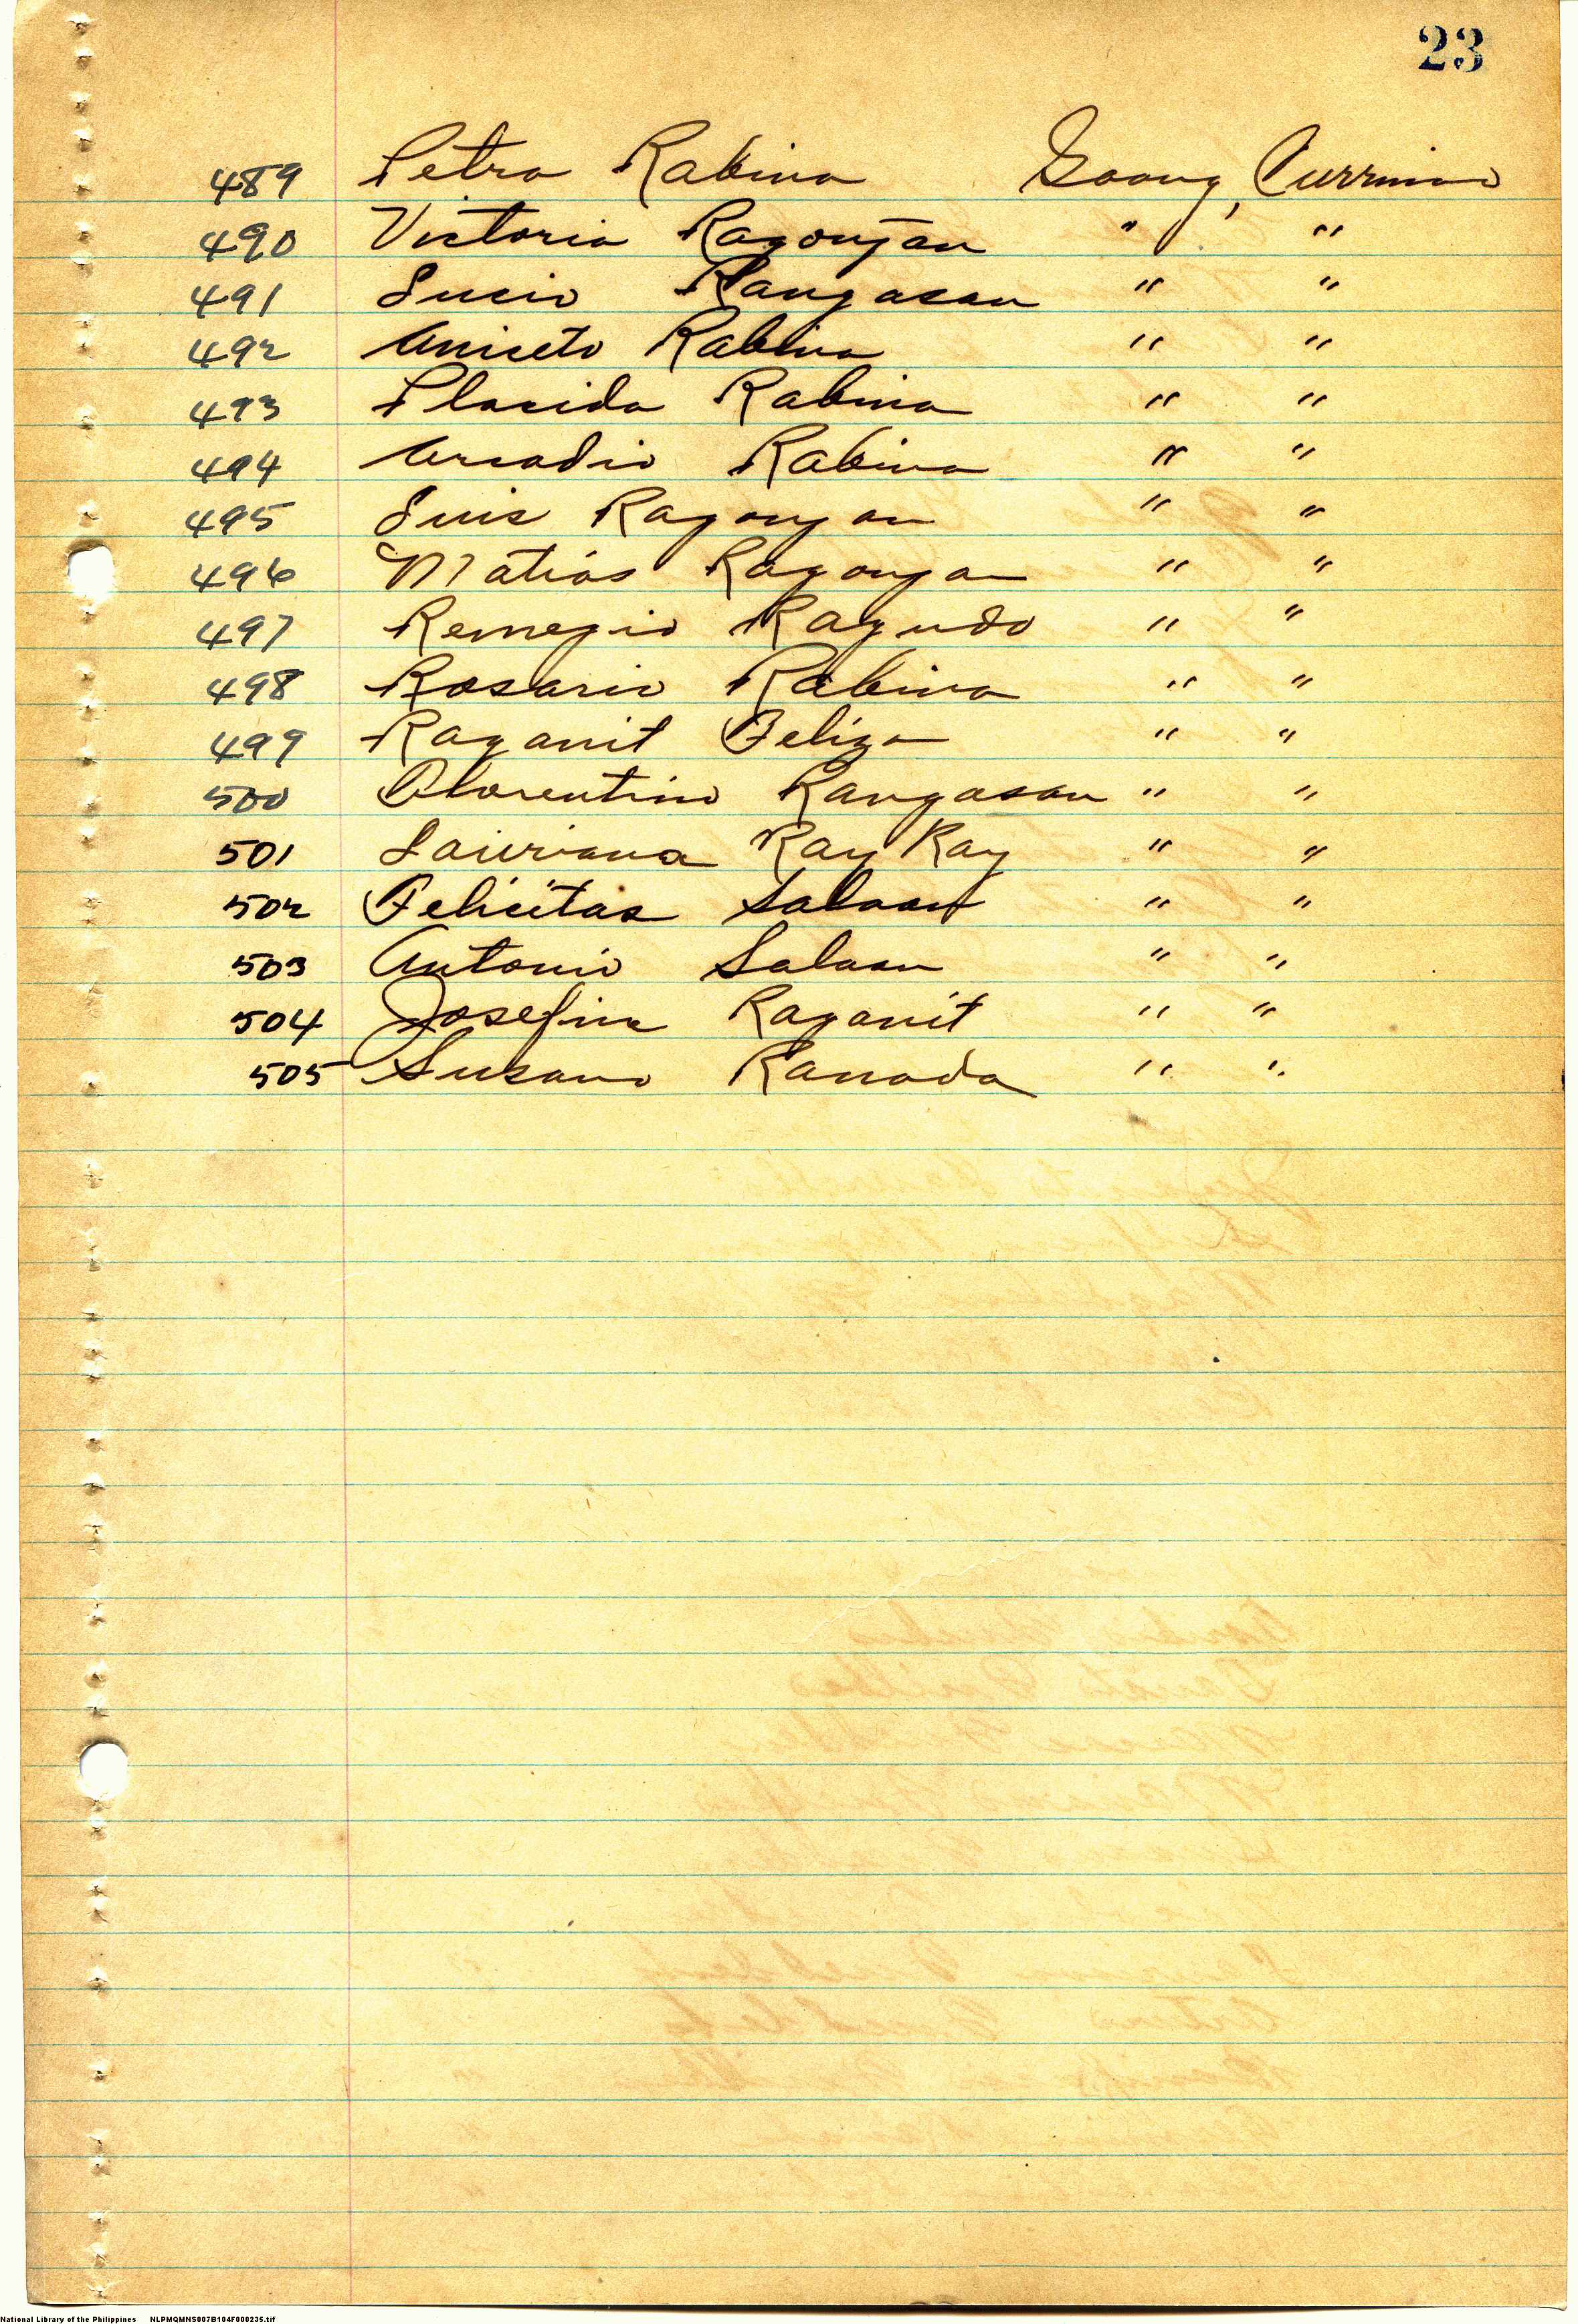 23
489 Petra Rabina Gaang, Currimao
490 Victoria Ragonjan " "
491 Lucio Rangasan " "
492 Aniseto Rabina " "
493 Placida Rabina " "
494 Arcadio Rabina " "
495 Luis Ragonjan " "
496 Matias Ragonjan " "
497 Remegio Ragudo " "
498 Rosario Rabina " "
499 Raganit Feliza " "
500 Florentino Rangasan " "
501 Lauriana Ray Ray " "
502 Felicitas Salaan " "
503 Antonio Salaan " "
504 Josefina Raganit " "
505 Susano Ranada " "
National Library of the Philippines NLPMQMNS007B104F000235.tif